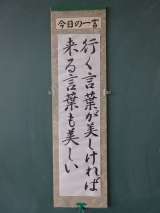 今日の一言
行く言葉が美しければ
来る言葉も美しい